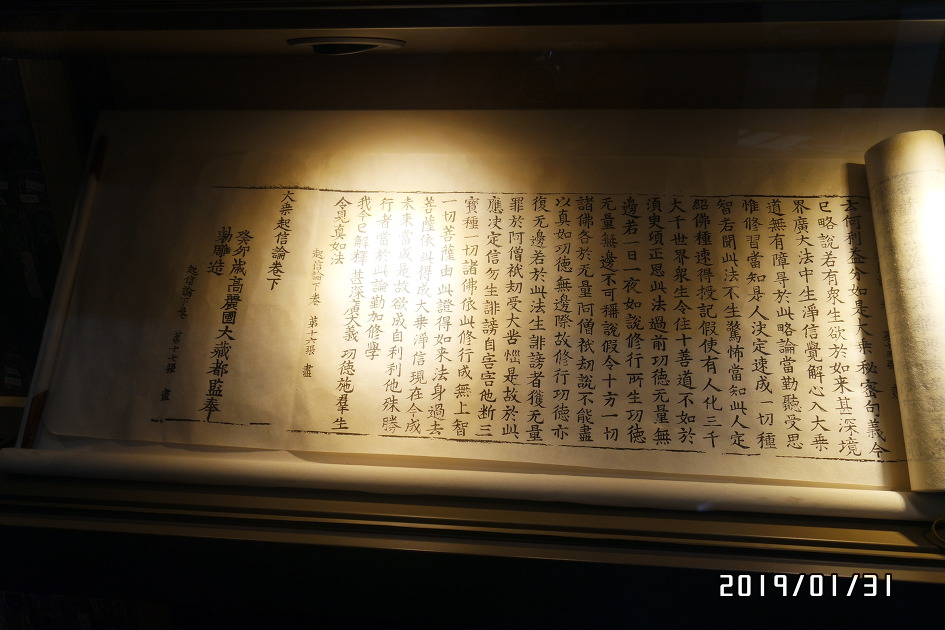 云何利益分如是大乘秘密句義今
已略說若有衆生欲於如來甚深境
界廣大法中生淨信覺解心入大乘
道無有障㝵於此略論當勤聽受思
惟修習當知是人決定速成一切種
智若聞此法不生驚怖當知此人定
紹佛種速得授記假使有人化三千
大千世界衆生令住十善道不如於
須臾頃正思此法過前功德無量無
邊若一日一夜如說修行所生功德
無量無邊不可稱說假令十方一切
諸佛各於無量阿僧祇劫說不能盡
以真如功德無邊際故修行功德亦
復無邊若於此法生誹謗者獲無量
罪於阿僧祇劫受大苦惱是故於此
應決定信勿生誹謗自害害他斷三
寶種一切諸佛依此修行成無上智
一切菩薩由此證得如來法身過去
菩薩依此得成大乘淨信現在今成
未來當成是故欲成自利利他殊勝
行者當於此論勤加修學
我今已解釋甚深廣大義功德施羣生
令見真如法
起信論下卷 第十六張 盡
大乘起信論卷下
癸卯歲高麗國大藏都監奉
勅雕造
起信論下卷 第十七張 盡
2019/01/31